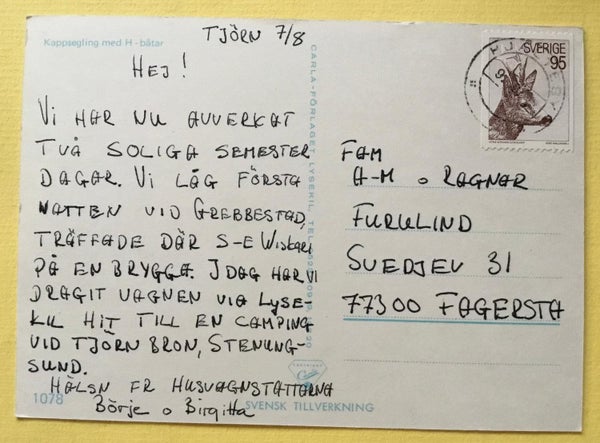 Kappsegling med H-båtar
TJÖRN 7/8
HEJ!
VI HAR NU AVVERKAT
TVÅ SOLIGA SEMESTER
DAGAR. VI LÅG FÖRSTA
NATTEN VID GREBBESTAD,
TRÄFFADE DÄR S-E
PÅ EN BRYGGA. IDAG HAR VI
DRAGIT VAGNEN VIA LYSE-
KIL HIT TILL EN CAMPING
VID TJÖRN BRON, STENUNG-
SUND.
HÄLSN FR HUSVAGNSTATTARNA
Börje o Birgitta
1078
SVENSK TILLVERKNING
CARLA-FÖRLAGET LYSEKIL TEL.
SVERIGE
95
FAM
A-M o RAGNAR
FURULIND
SVEDJEV 31
77300 FAGERSTA